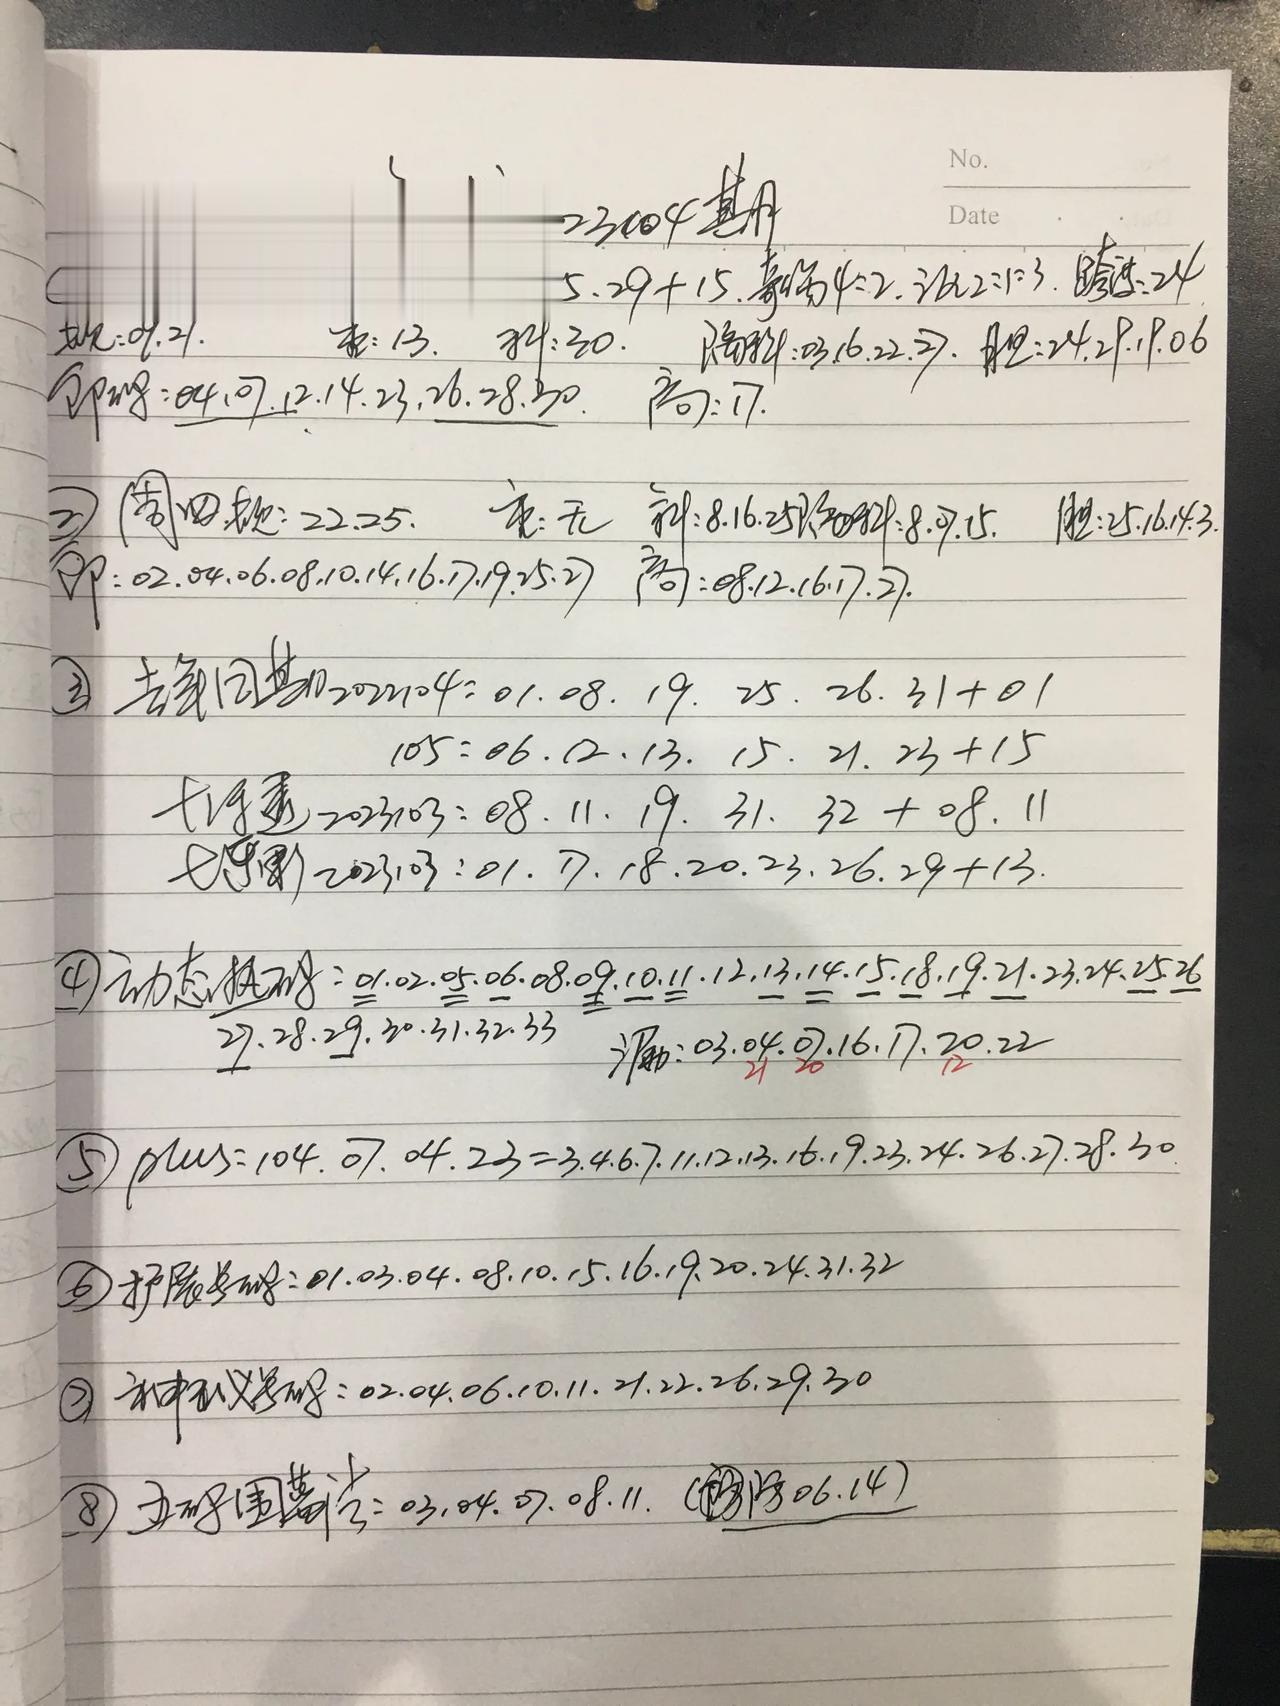 No.
Date
23104期
5.29+15.奇偶4:2.江山2:1:3 跨度:24
规:09.21. 重:13. 斜:30. 隔斜:03.16.22.27. 胆:24.29.19.06
邻码:04.07.12.14.23.26.28.30. 高:17.
② 周四规:22.25. 重:无 斜:8.16.25 隔斜:8.07.15. 胆:25.16.14.3.
邻:02.04.06.08.10.14.16.17.19.25.27 高:08.12.16.17.27.
③ 去年同期2022104:01.08.19.25.26.31+01
105:06.12.13.15.21.23+15
大乐透2023103:08.11.19.31.32+08.11
七乐彩2023103:01.17.18.20.23.26.29+13.
④ 动态热码:01.02.05.06.08.09.10.11.12.13.14.15.18.19.21.23.24.25.26
27.28.29.30.31.32.33 :03.04.07.16.17.20.22
21 20 12
⑤ plus:104.07.04.23=3.4.6.7.11.12.13.16.19.23.24.26.27.28.30
⑥ 扩展号码:01.03.04.08.10.15.16.19.20.24.31.32
⑦ 号码:02.04.06.10.11.21.22.26.29.30
⑧ 五码围蓝法:03.04.07.08.11. (06.14)